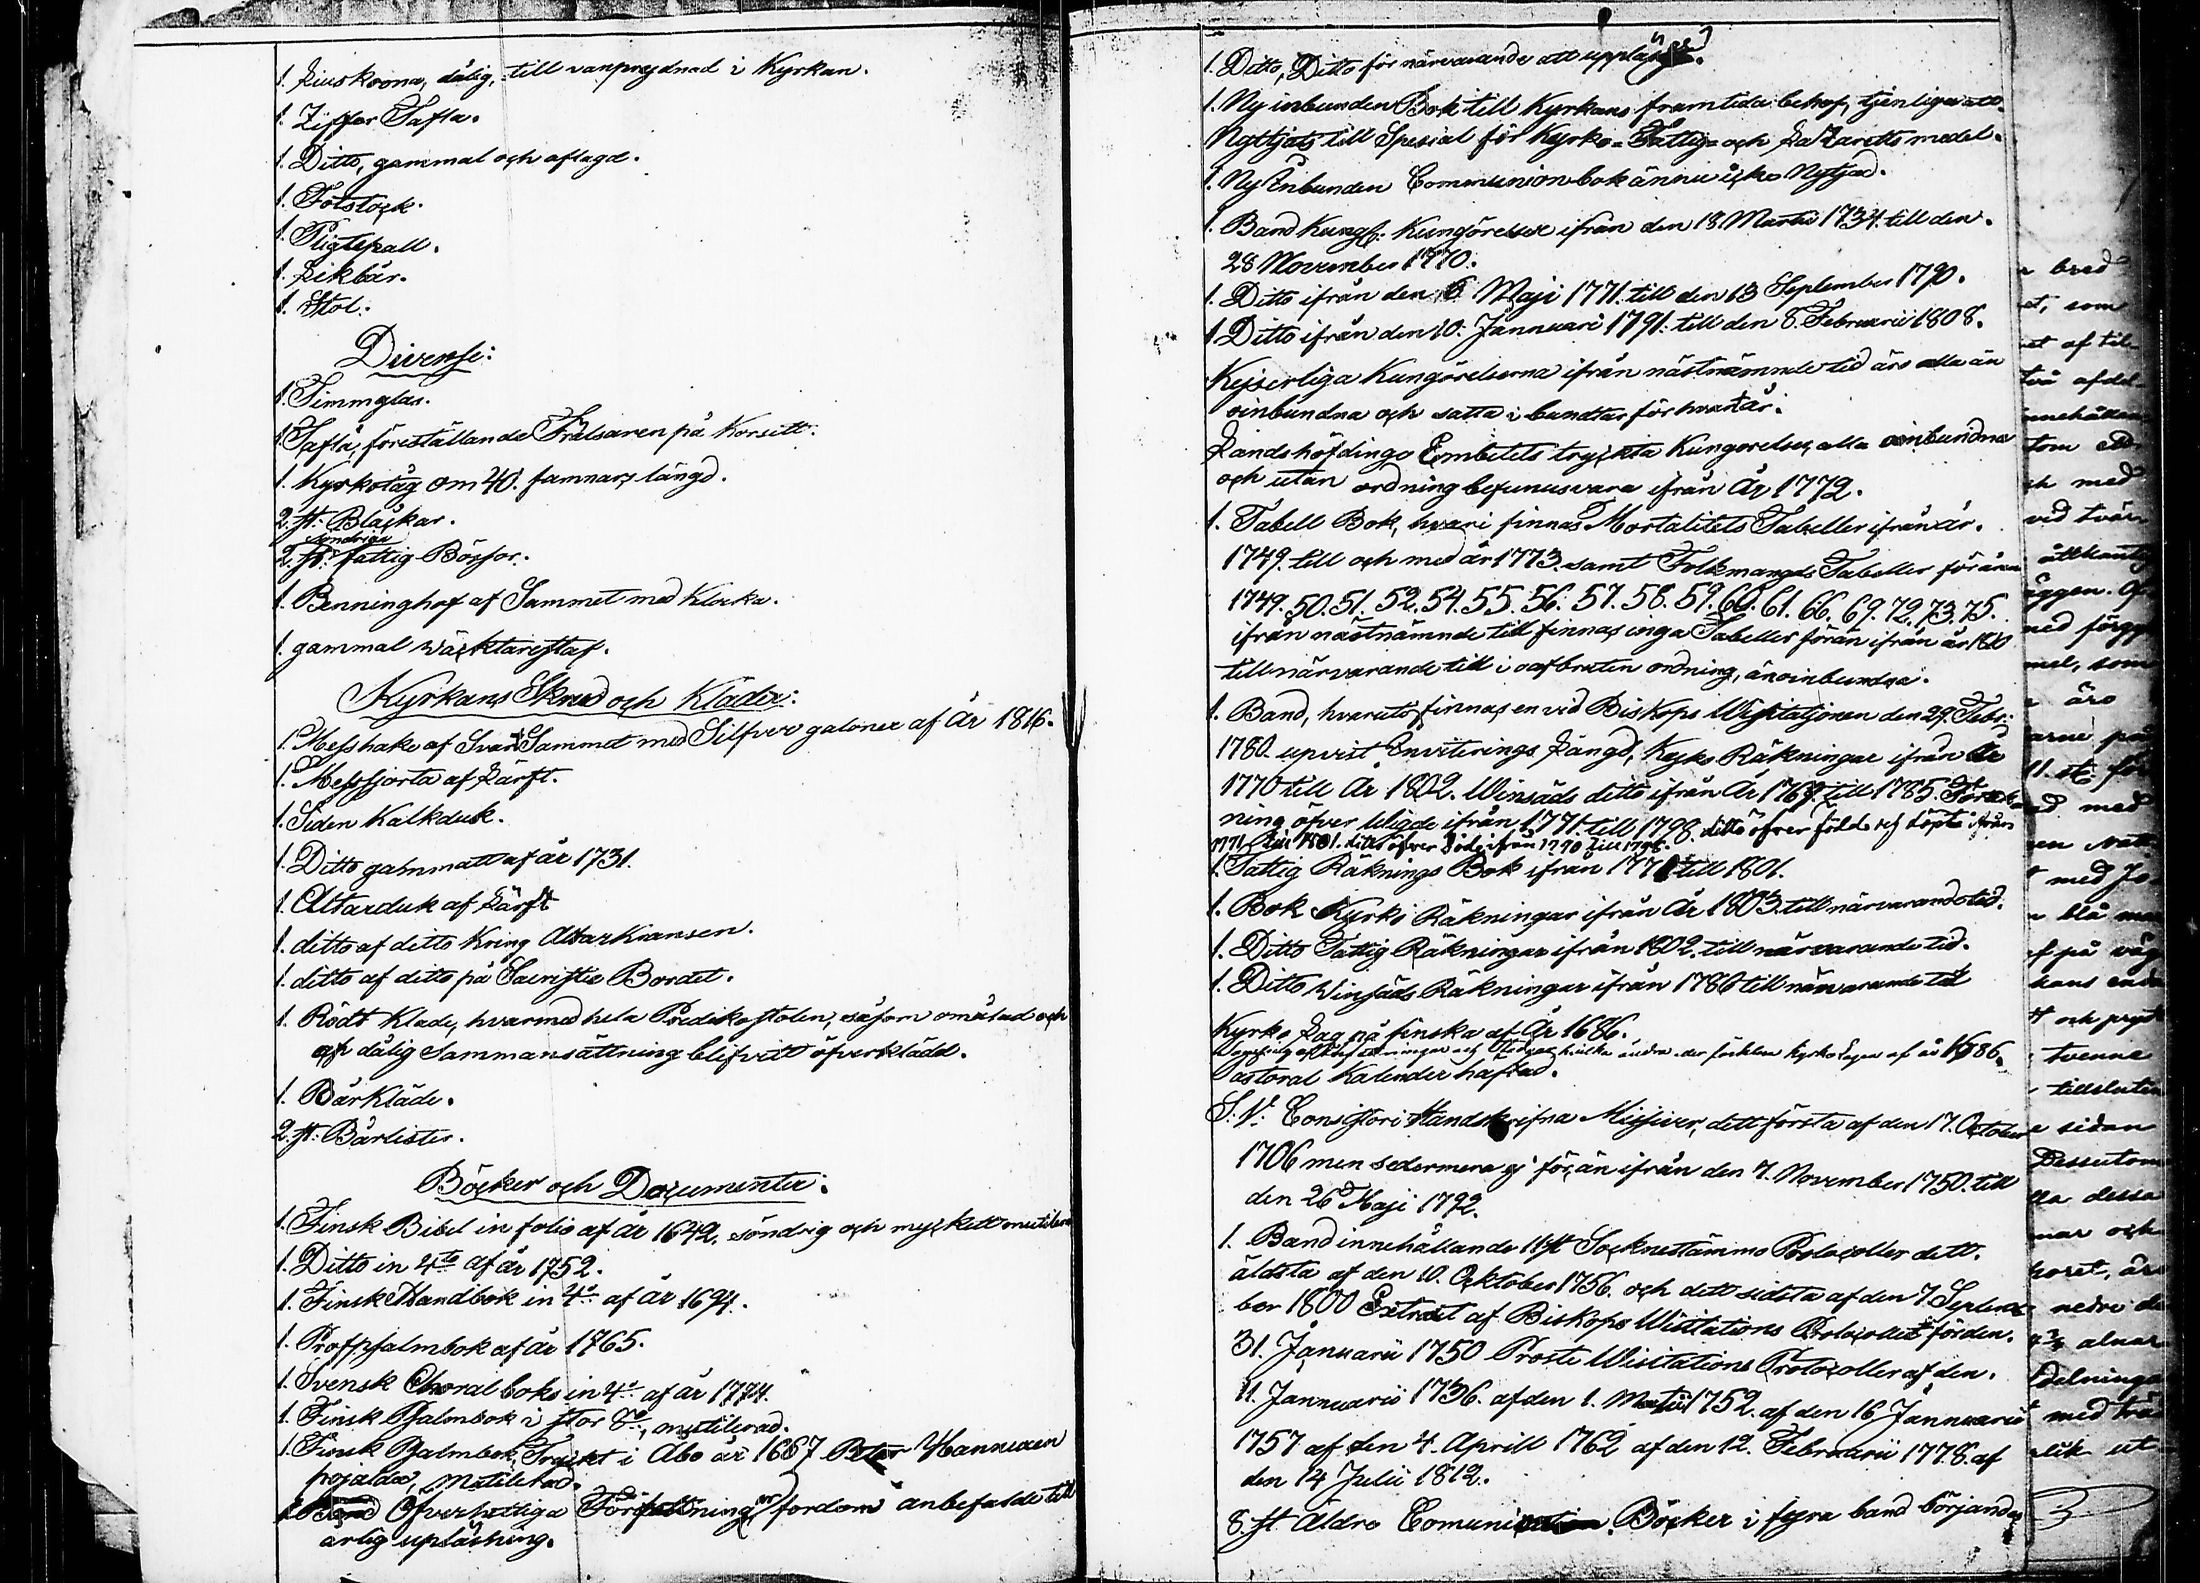 1. Liuskrona, dålig, till vanprydnad i Kyrkan.
1. Ziffer Tafla.
1. Ditto, gammal och aflagd.
1. Fotstock.
1. Pligtepall.
1. Likbår.
1. Stol.
Diverse:
1. Timmglas.
1. Tafla, föreställande Frälsaren på Korsett.
1. Kyrkotåg om 40. famnars längd.
2. st: Bläckar.
söndriga
2. st: fattig Börsor.
1. Benninghof af Sammet med Klocka.
1. gammal wäcktarestaf.
Kyrkans Skrud och Kläder:
1. Messhake af Svart Sammet med Silfver galoner af År 1816.
1. Messsjorta af Lärft.
1. Siden Kalkduk.
1. Ditto gammatt af år 1731.
1. Altarduk af Lärft
1. ditto af ditto Kring Altar Kransen.
1. ditto af ditto på Sacristie Bordet.
1. Rödt Kläde, hvarmed hela Predikostolen, såsom omålad och
af dålig Sammansättning blifvitt öfverklädd.
1. Bårkläde.
2. st: Bårlister.
Böcker och Documenter:
1. Finsk Bibel in folio af år 1642. söndrig och myckett mutilerad
1. Ditto in 4to af år 1752.
1. Finsk Handbok in 4o af år 1694.
1. Profpsalmbok af år 1765.
1. Svensk Choral boks in 4o af år 1774.
1. Finsk Psalmbok i stor 8o, mutilerad.
1. Finsk Psalmbok, Tryckt i Åbo år 1687 Peter Hannuxen
pojalda, mutilerad.
1. Band Öfverhetliga Författningar fordom anbefalde till
årlig upläsning.
1. Ditto, Ditto för närvarande att uppläsas.
1. Ny inbunden Bok till Kyrkans framtida behof, tjenliga att
Nyttjats till Spesial för Kyrko- Fattig- och Lazaretts medel.
1. Ny Inbunden Communionbok ännu icke Nytjad.
1. Band Kungl: Kungörelser ifrån den 18. Martii 1734. till den
28 November 1770.
1. Ditto ifrån den 6 Maji 1771. till den 13 September 1790.
1. Ditto ifrån den 10. Jannuari 1791. till den 8. Februarii 1808.
Kejserliga Kungörelserna ifrån nästnämnde tid äro alla än
oinbundna och satta i bundtar för hvart år.
Landshöfdinge Embetets tryckta Kungorelser, alla oinbundna
och utan ordning befunus vara ifrån År 1772.
1. Tabell Bok, hvari finnas Mortalitets Tabeller ifrån år.
1749. till och med år 1773. samt Folkmangds Tabeller för åren
1749. 50. 51. 52. 54. 55. 56. 57. 58. 59. 60. 61. 66. 69. 72. 73. 75.
ifrån nästnämnde till finnas inga Tabeller förän ifrån år 1800
till närvarande till i oafbruten ordning, än oinbundna.
1. Band, hvaruti finnas en vid Biskops Wisitatjonen den 29. Febr:
1780. upvist Inviterings Längd, Kyko Räkningar ifrån År
1770 till År 1802. Winsäds ditto ifrån År 1769. till 1785. Förtek
ning öfver Wigde ifrån 1771. till 1798. ditto öfver födde och döpte ifrån
1771 till 1801. ditto öfver Döde ifrån 1770 till 1798.
1. Fattig Räknings Bok ifrån 1771 till 1801.
1. Bok Kyrko Räkningar ifrån År 1803. till närvarande tid.
1. Ditto Fattig Räkningar ifrån 1802. till närvarande tid.
1. Ditto Winsäds Räkningar ifrån 1786 till närvarande tid
Kyrko Lag på finska af År 1686.
af och hvilka ändra der förklara Kyrko Lagen af år 1686.
Pastoral Kalender haftad.
S. V. Consistori Handskrifna Missiver, dett första af den 17. October
1706 men sedermera ej förän ifrån den 7. November 1750. till
den 26 Maji 1792.
1. Band innehållande 11 st Socknestämmo Protocoller dett
äldsta af den 10. October 1756. och dett sidsta af den 7 Septem
ber 1800 Extract af Biskops Wisitations Protocollet för den.
31. Januarii 1750 Proste Wisitations Protocoller af den.
11. Jannuarii 1736. af den 1. Martii 1752. af den 16 Jannuarii
1757 af den 4. Aprill 1762 af den 12. Februarii 1778. af
den 14 Julii 1812.
8. st Äldre Communion Böcker i fyra band börjande
bred
et, som
et af til
två afdel
innehållan
tom
och med
vid tvän
åttkantig
äggen. Of
med förgyl
mel, som
äro
arne på
11. st: för
ed med
en
med Jo
blå
f på väg
kans
tt och pryd
tvenne
tillsluten
e sidan
Dessutom
lla dessa
nar och
koret, är
nedre de
4 3/4 alnar
delninga
med trä
lik ut
3